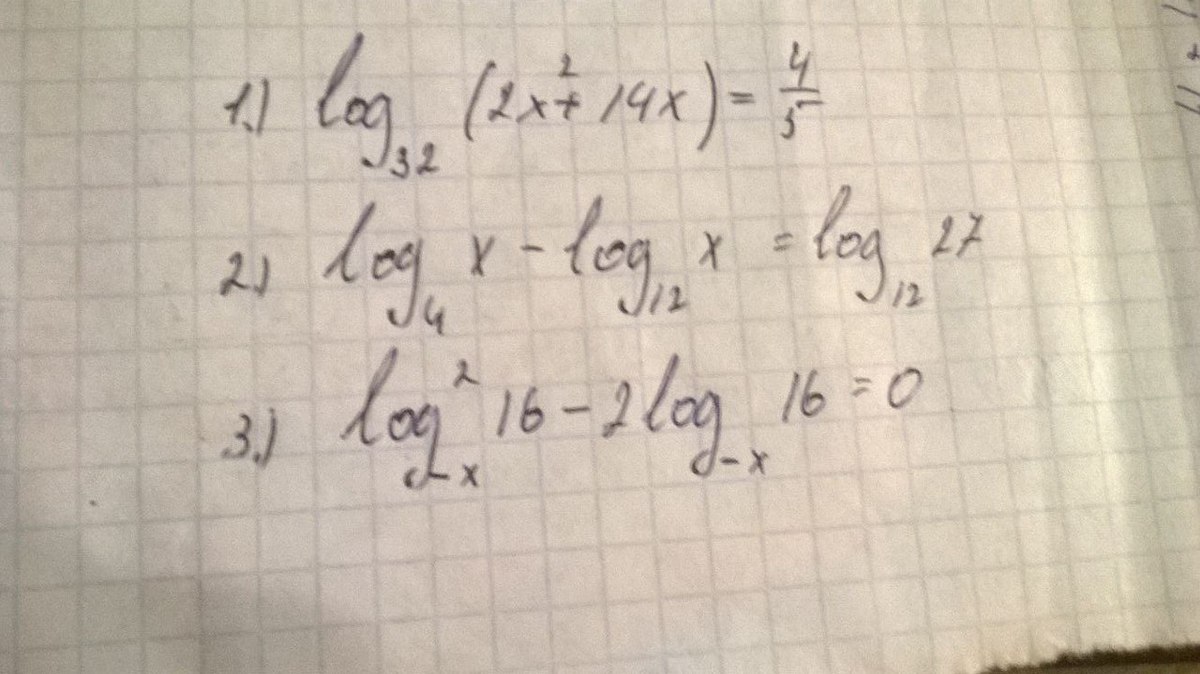 1.) log₃₂ (2x² + 14x) = 4/5
2.) log₄ x - log₁₂ x = log₁₂ 27
3.) log²₋ₓ 16 - 2 log₋ₓ 16 = 0